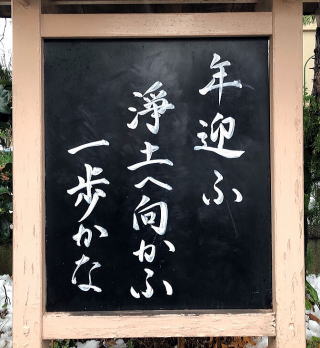 年迎ふ
淨土へ向かふ
一歩かな